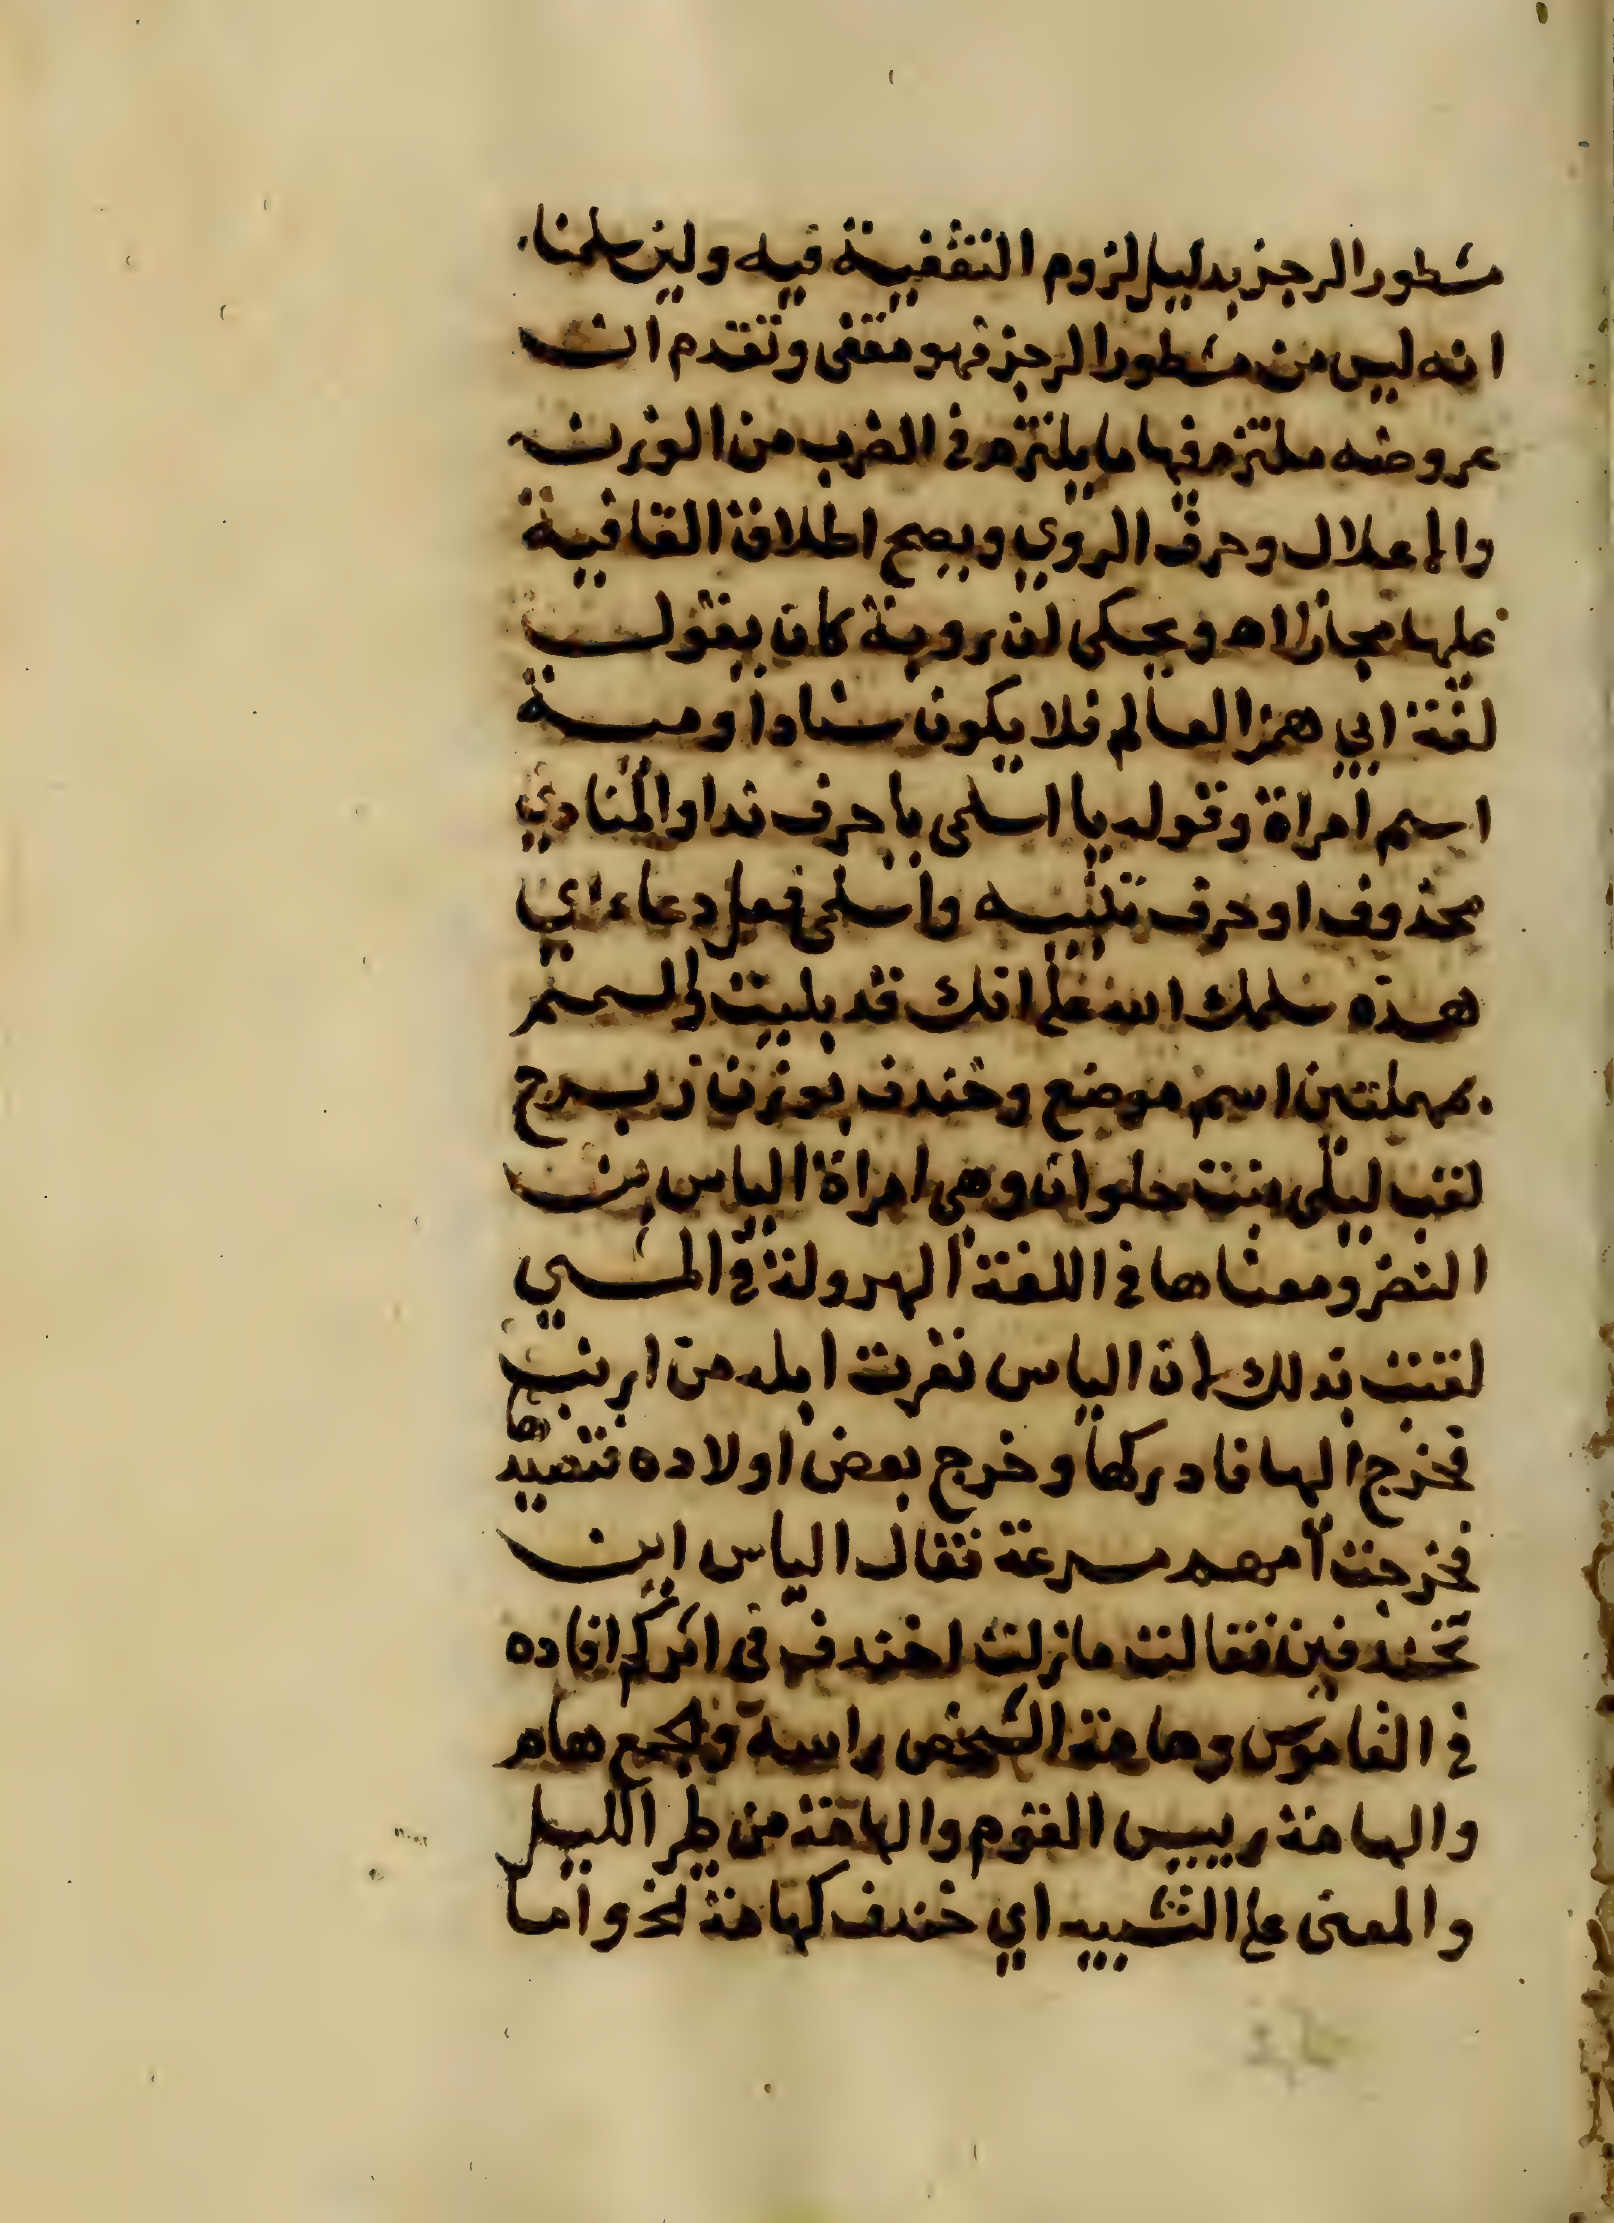 مشطور الرجز بدليل لزوم التقفية فيه ولين سلمنا
انه ليس من مشطور الرجز فهو مقفى وتقدم ان
عروضه ملتزم فيها ما يلتزم في الضرب من الوزن
والاعلال وحرف الروي ويصح اطلاق القافية
عليها مجازا اه ويحكى ان روبة كان يقول
لغة ابي همز العالم فلا يكون سنادا ومية
اسم امراة وقوله يا اسلمى يا حرف ندا والمنادي
محذوف او حرف تنبيه واسلمى فعل دعاء اي
هذه سلمك الله على انك قد بليت والسمسم
بمهملتين اسم موضع وخندف بوزن زبرج
لقب ليلى بنت حلوان وهي امراة الياس بن
النضر ومعناها في اللغة الهرولة في المشي
لقبت بذلك لان الياس نفرت ابله من ارنب
فخرج اليها فادركها وخرج بعض اولاده فتصيدها
فخرجت امهم مسرعة فقال الياس اين
تخندفين فقالت ما زلت اخندف في اثركم افاده
في القاموس وهامة الشخص راسه والجمع هام
والهامة رييس القوم والهامة من طير الليل
والمعنى على التشبيه اي خندف كهامة الخ واما